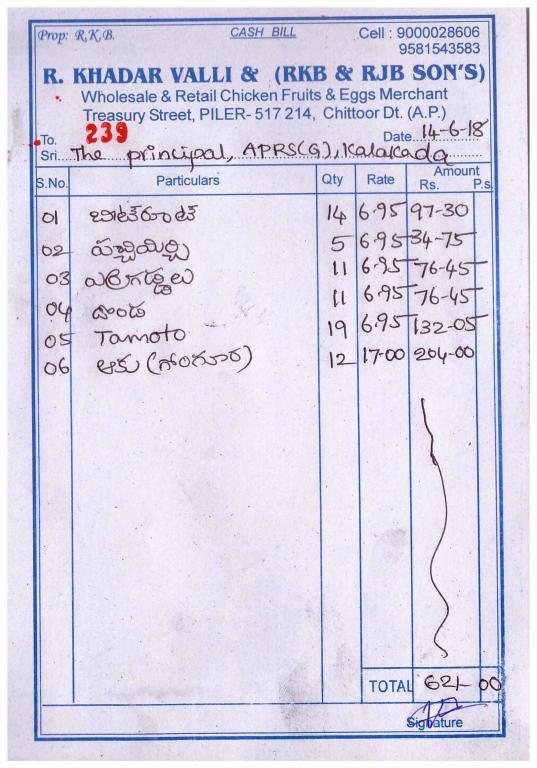 Prop: R.K.B. CASH BILL Cell : 9000028606
9581543583
R. KHADAR VALLI & (RKB & RJB SON'S)
Wholesale & Retail Chicken Fruits & Eggs Merchant
Treasury Street, PILER- 517 214, Chittoor Dt. (A.P.)
To. 239 Date 14-6-18
Sri... The principal, APRS(G), Kalakada
S.No. Particulars Qty Rate Amount Rs. P.s.
01 బీట్రూట్ 14 6.95 97-30
02 పచ్చిమిర్చి 5 6.95 34-75
03 ఎర్రగడ్డలు 11 6.95 76-45
04 దొండ 11 6.95 76-45
05 Tamoto 19 6.95 132-05
06 ఆకు (గోంగూర) 12 17-00 204-00
TOTAL 621-00
Signature